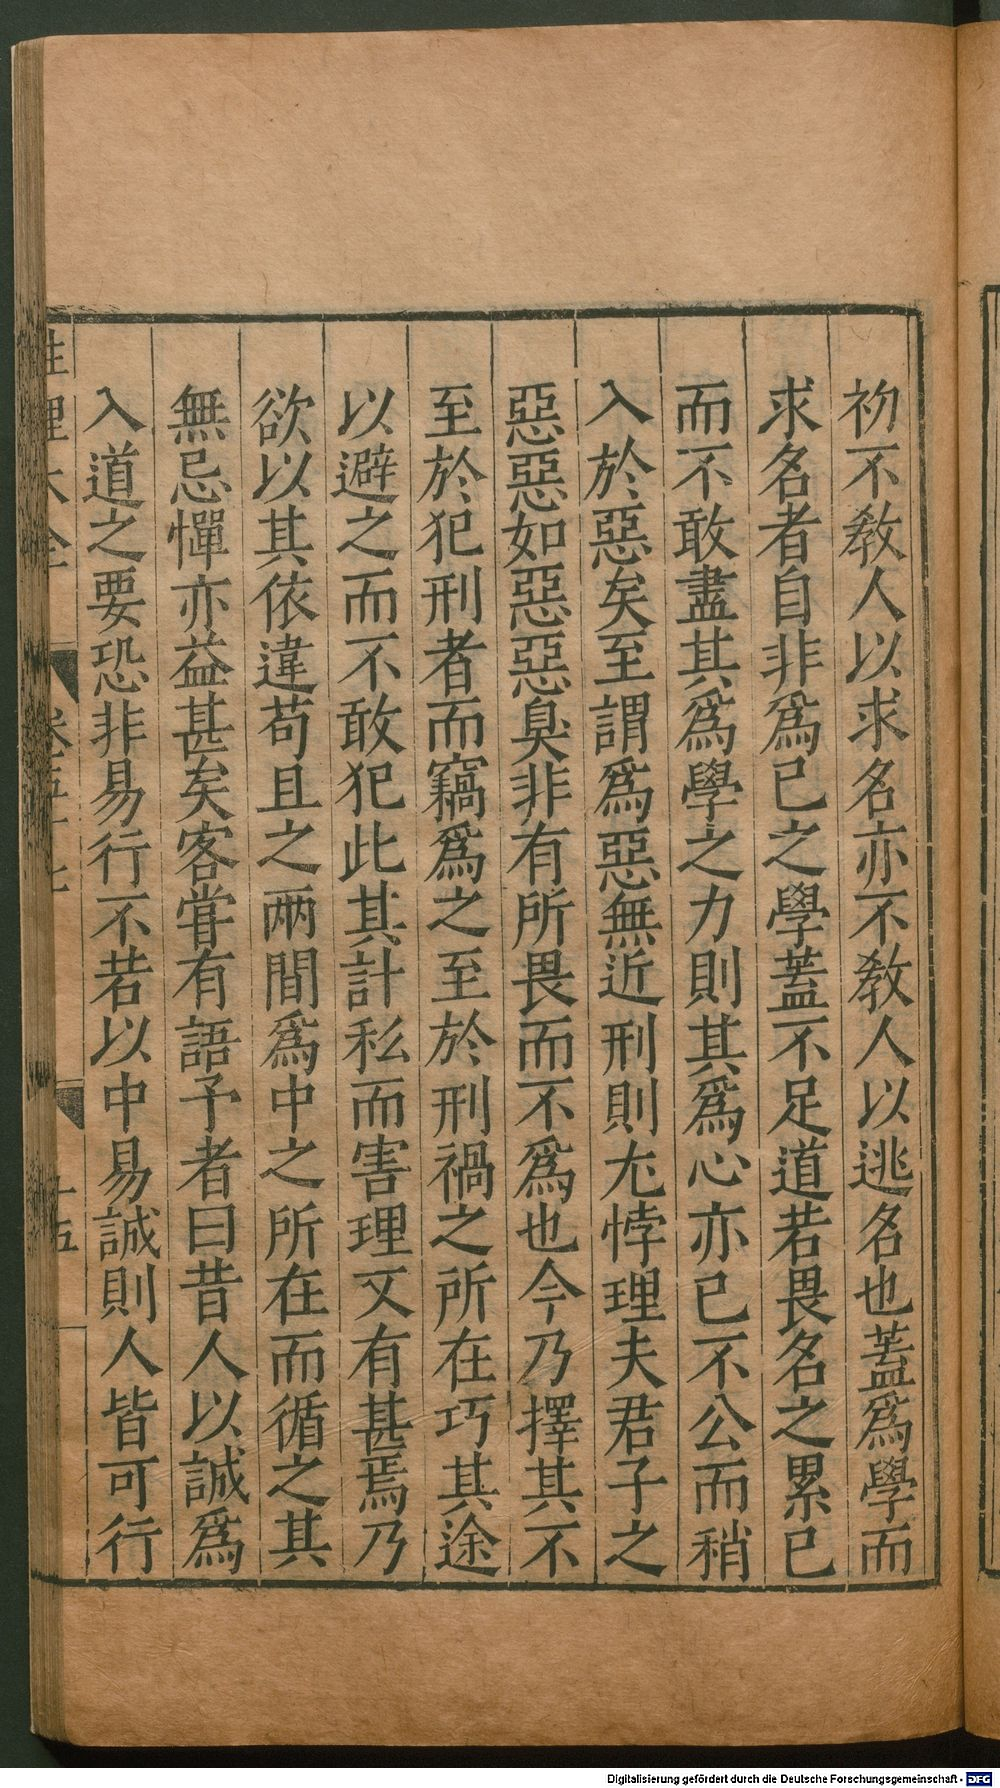 初不教人以求名亦不教人以逃名也蓋爲學而
求名者自非爲已之學蓋不足道若畏名之累已
而不敢盡其爲學之力則其爲心亦已不公而稍
入於惡矣至謂爲惡無近刑則尤悖理夫君子之
惡惡如惡惡臭非有所畏而不爲也今乃擇其不
至於犯刑者而竊爲之至於刑禍之所在巧其途
以避之而不敢犯此其計私而害理又有甚焉乃
欲以其依違苟且之兩間爲中之所在而循之其
無忌憚亦益甚矣客嘗有語予者曰昔人以誠爲
入道之要恐非易行不若以中易誠則人皆可行
性理大全 卷五十七 十五
Digitalisierung gefördert durch die Deutsche Forschungsgemeinschaft - DFG